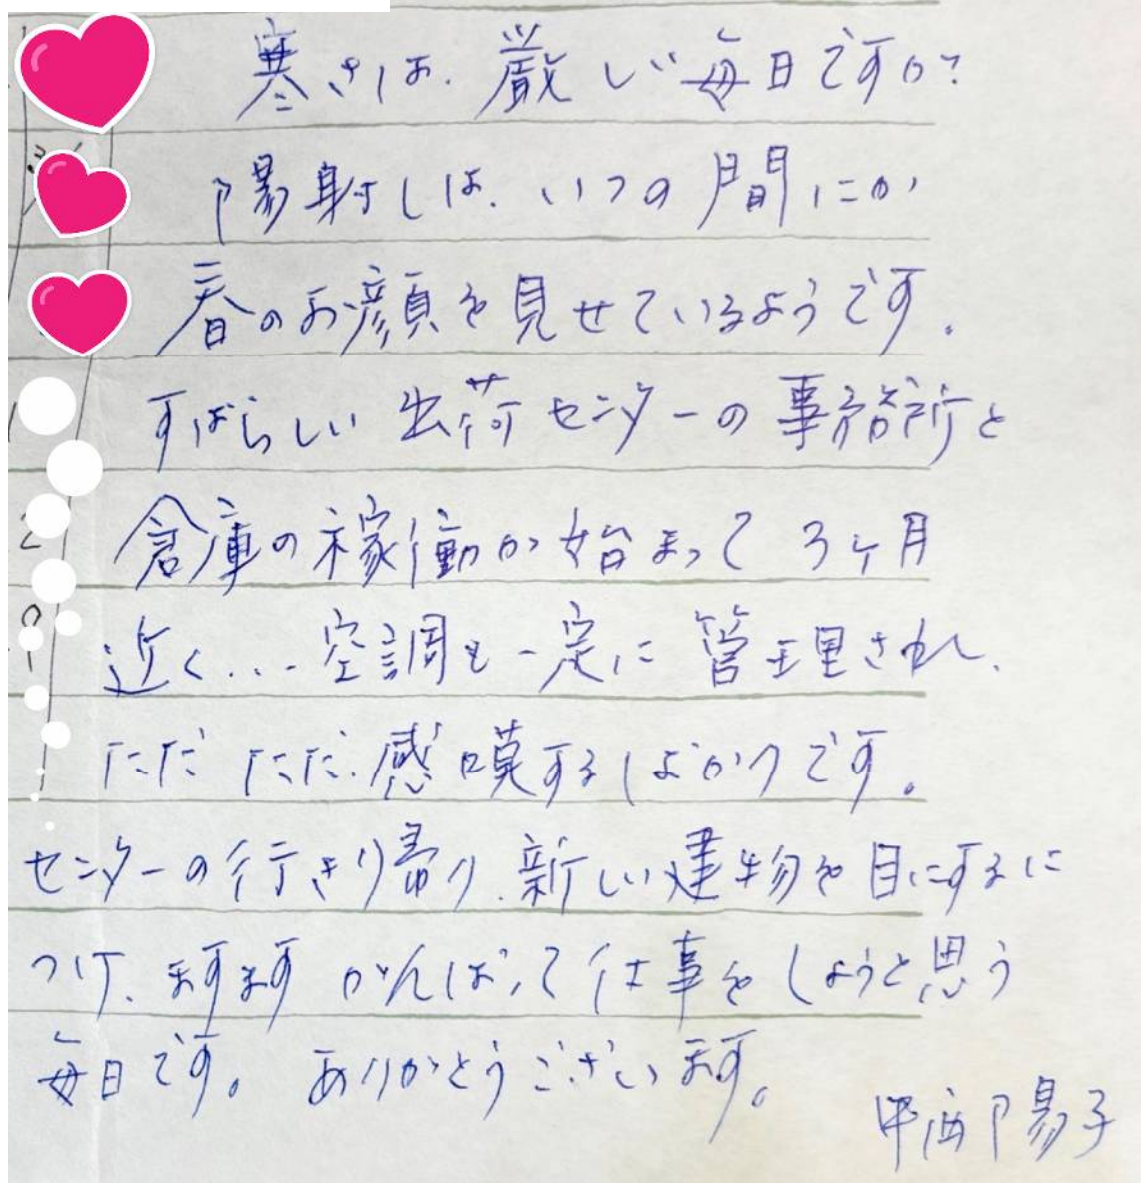 寒さは、厳しい毎日ですが?
陽射しは、いつの間にか
春のお顔を見せているようです。
すばらしい出荷センターの事務所と
倉庫の稼働が始まって3ヶ月
近く... 空調も一定に管理され、
ただただ、感嘆するばかりです。
センターの行き帰り、新しい建物を目にするに
つけ、ますますがんばって仕事をしようと思う
毎日です。ありがとうございます。
陽子